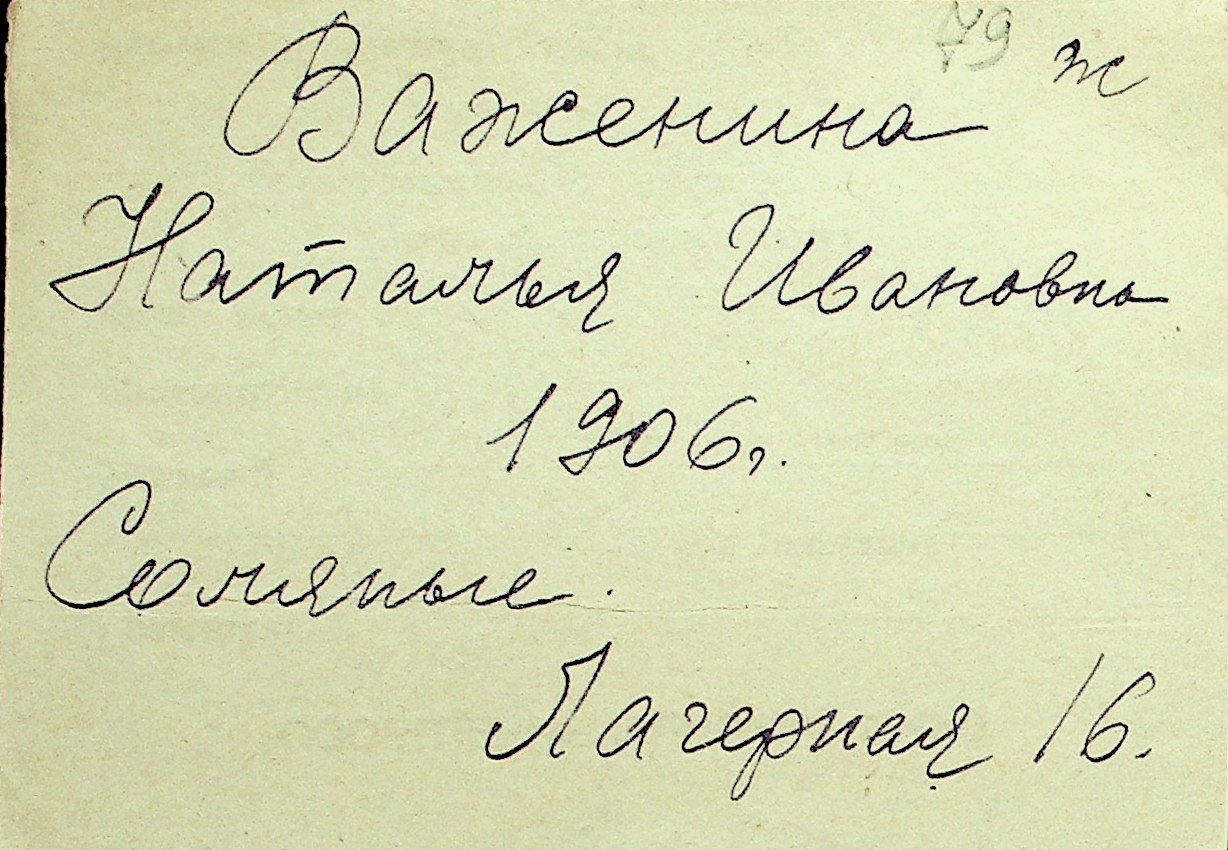 79 ж
Важенина
Наталья Ивановна
1906г.
Соляные.
Лагерная 16.